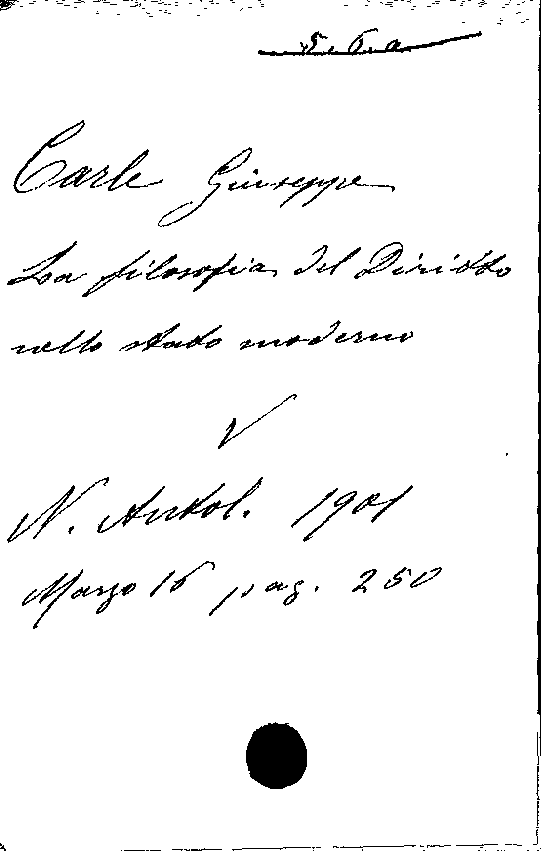 5. 6. a
Carle Giuseppe
La filosofia del Diritto
nello stato moderno
V
N. Antol. 1901
Marzo 16 pag. 250